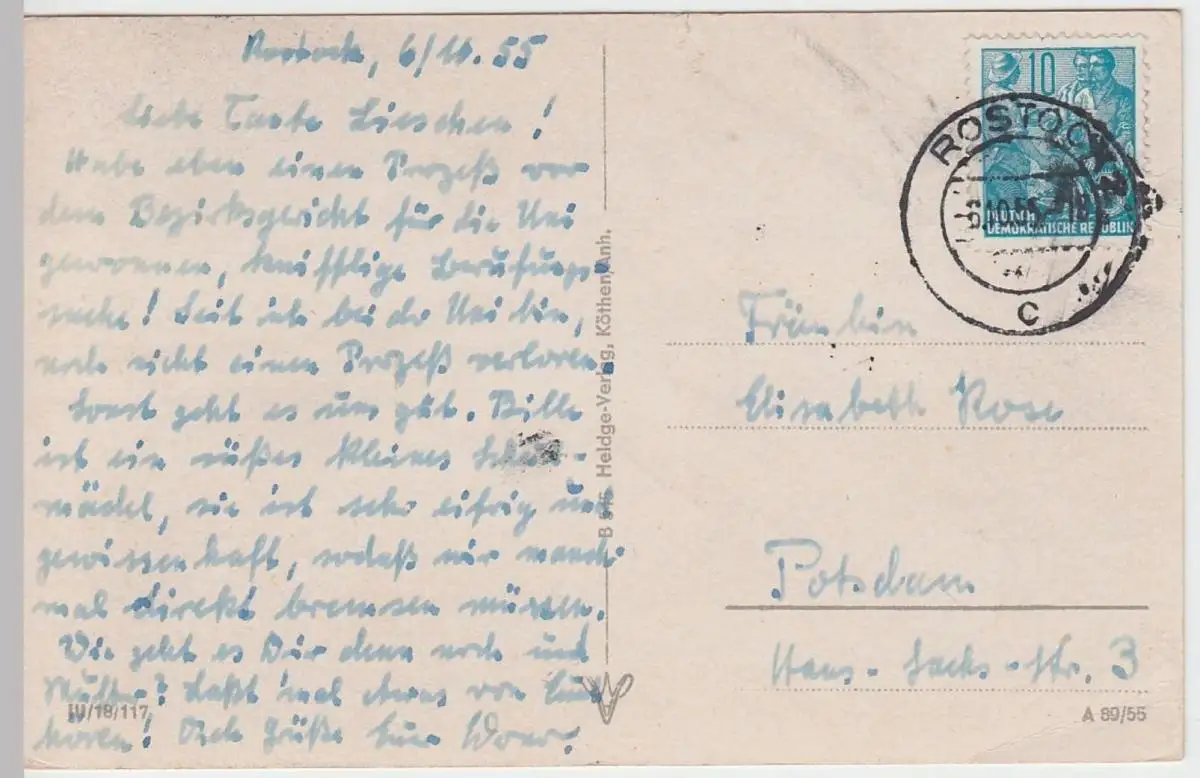 Rostock, 6/10.55
Liebe Tante Lieschen!
Habe eben einen Prozeß vor
dem Bezirksgericht für die Uni
gewonnen, kniffflige Berufungs-
sache! Seit ich bei der Uni bin,
noch nicht einen Prozeß verloren.
Sonst geht es uns gut. Bille
ist ein süßes kleines Schul-
mädel, sie ist sehr eifrig und
gewissenhaft, sodaß wir manch-
mal direkt bremsen müssen.
Wie geht es Dir denn noch und
Mutter? Laßt mal etwas von Euch
hören! Grüße Euer
III/18/117
B 516 Heldge-Verlag, Köthen/Anh.
10
DEUTSCHE
DEMOKRATISCHE REPUBLIK
ROSTOCK 2
6.10.55
C
Fräulein
Elisabeth Rose
Potsdam
Hans-Sachs-Str. 3
A 89/55